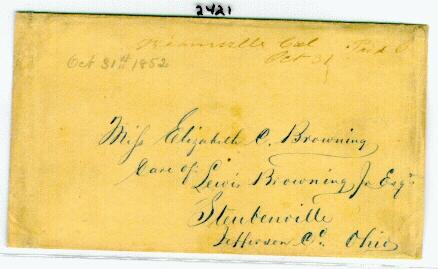 2421
Cal Paid
Oct 31
Oct 31st 1852
Miss Elizabeth C. Browning
Care of Lewis Browning Jr Esqr
Steubenville
Jefferson Co. Ohio